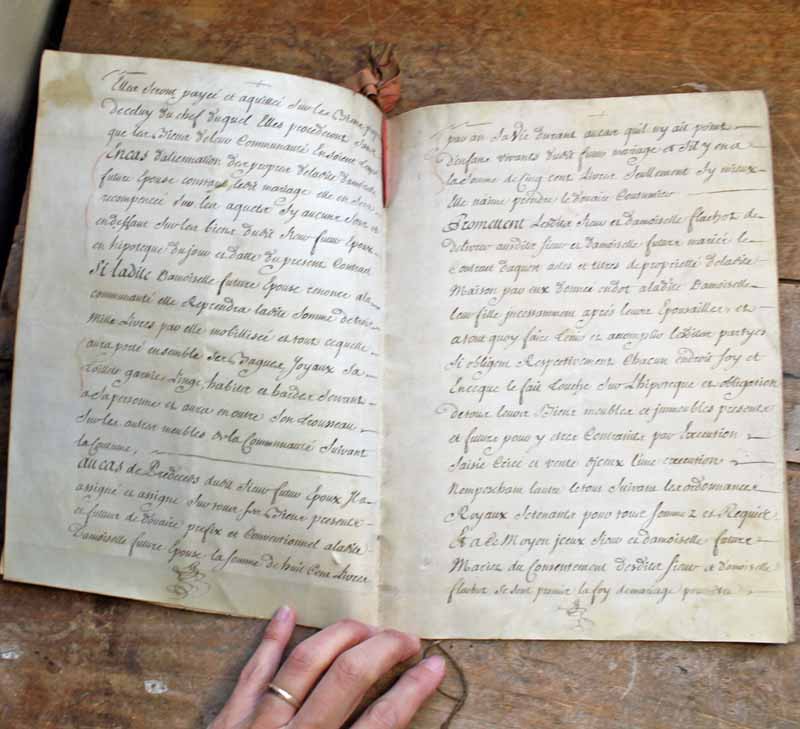 Elles seront payée et aquittée sur les Biens propres
de celuy du chef duquel Elles procederont sans
que les Bien de leur Communauté En soient
Encas d'alienation des propres de ladite Damoiselle
future Epouse constant ledit mariage elle en sera
recompencée sur les aquets sy aucune sont et
en deffaut sur les biens dudit sieur futur Epoux
en hipoteque du jour et datte du present Contract
Si ladite Damoiselle future Epouse renonce ala
communauté elle Reprendra ladite somme de trois
mille Livres par elle mobillisée et tout ce quelle
aura porté ensemble ses Bagues, Joyaux sa
toillete garnie, Linge, habits et hardes servant
a sa personne et aura en outre son trousseau
sur les autres meubles de la Communauté suivant
la Coutume,
au cas de Predeces dudit sieur futur Epoux Il a
assigné et assigne sur tous ses Biens presents
et futurs de douaire prefix et Conventionnel a ladite
Damoiselle future Epouse la somme de huit Cent Livres
par an sa Vie durant aucas quil ny ait point
d'enfans vivants dudit futur mariage et s'il y en a
la somme de Cinq Cent Livres seullement sy mieux
Elle naime prendre le douaire Coutumier
Promettent Lesdits sieur et damoiselle flachot de
delivrer ausdits sieur et damoiselle future mariée le
Contract daquet actes et titres de proprieté de ladite
Maison par eux donnée en dot a ladite Damoiselle
leur fille incessamment après leurs Epousailles, et
a tout quoy faire tenir et accomplir lesdites partyes
si obligent Respectivement Chacun endroit soy et
En ce que le fait touche sur L'hipoteque et obligation
de tous leurs Biens meubles et immeubles presents
et future pour y etre Contraints par Execution
saisie Criée et vente diceux l'une execution
Nempechant lautre le tout suivant les ordonnances
Royaux se tenants pour tous sommez et Requis
Et a Ce Moyen iceux sieur et damoiselle future
Mariez du Consentement desdits sieur et damoiselle
flachot se sont promis la foy de mariage pour